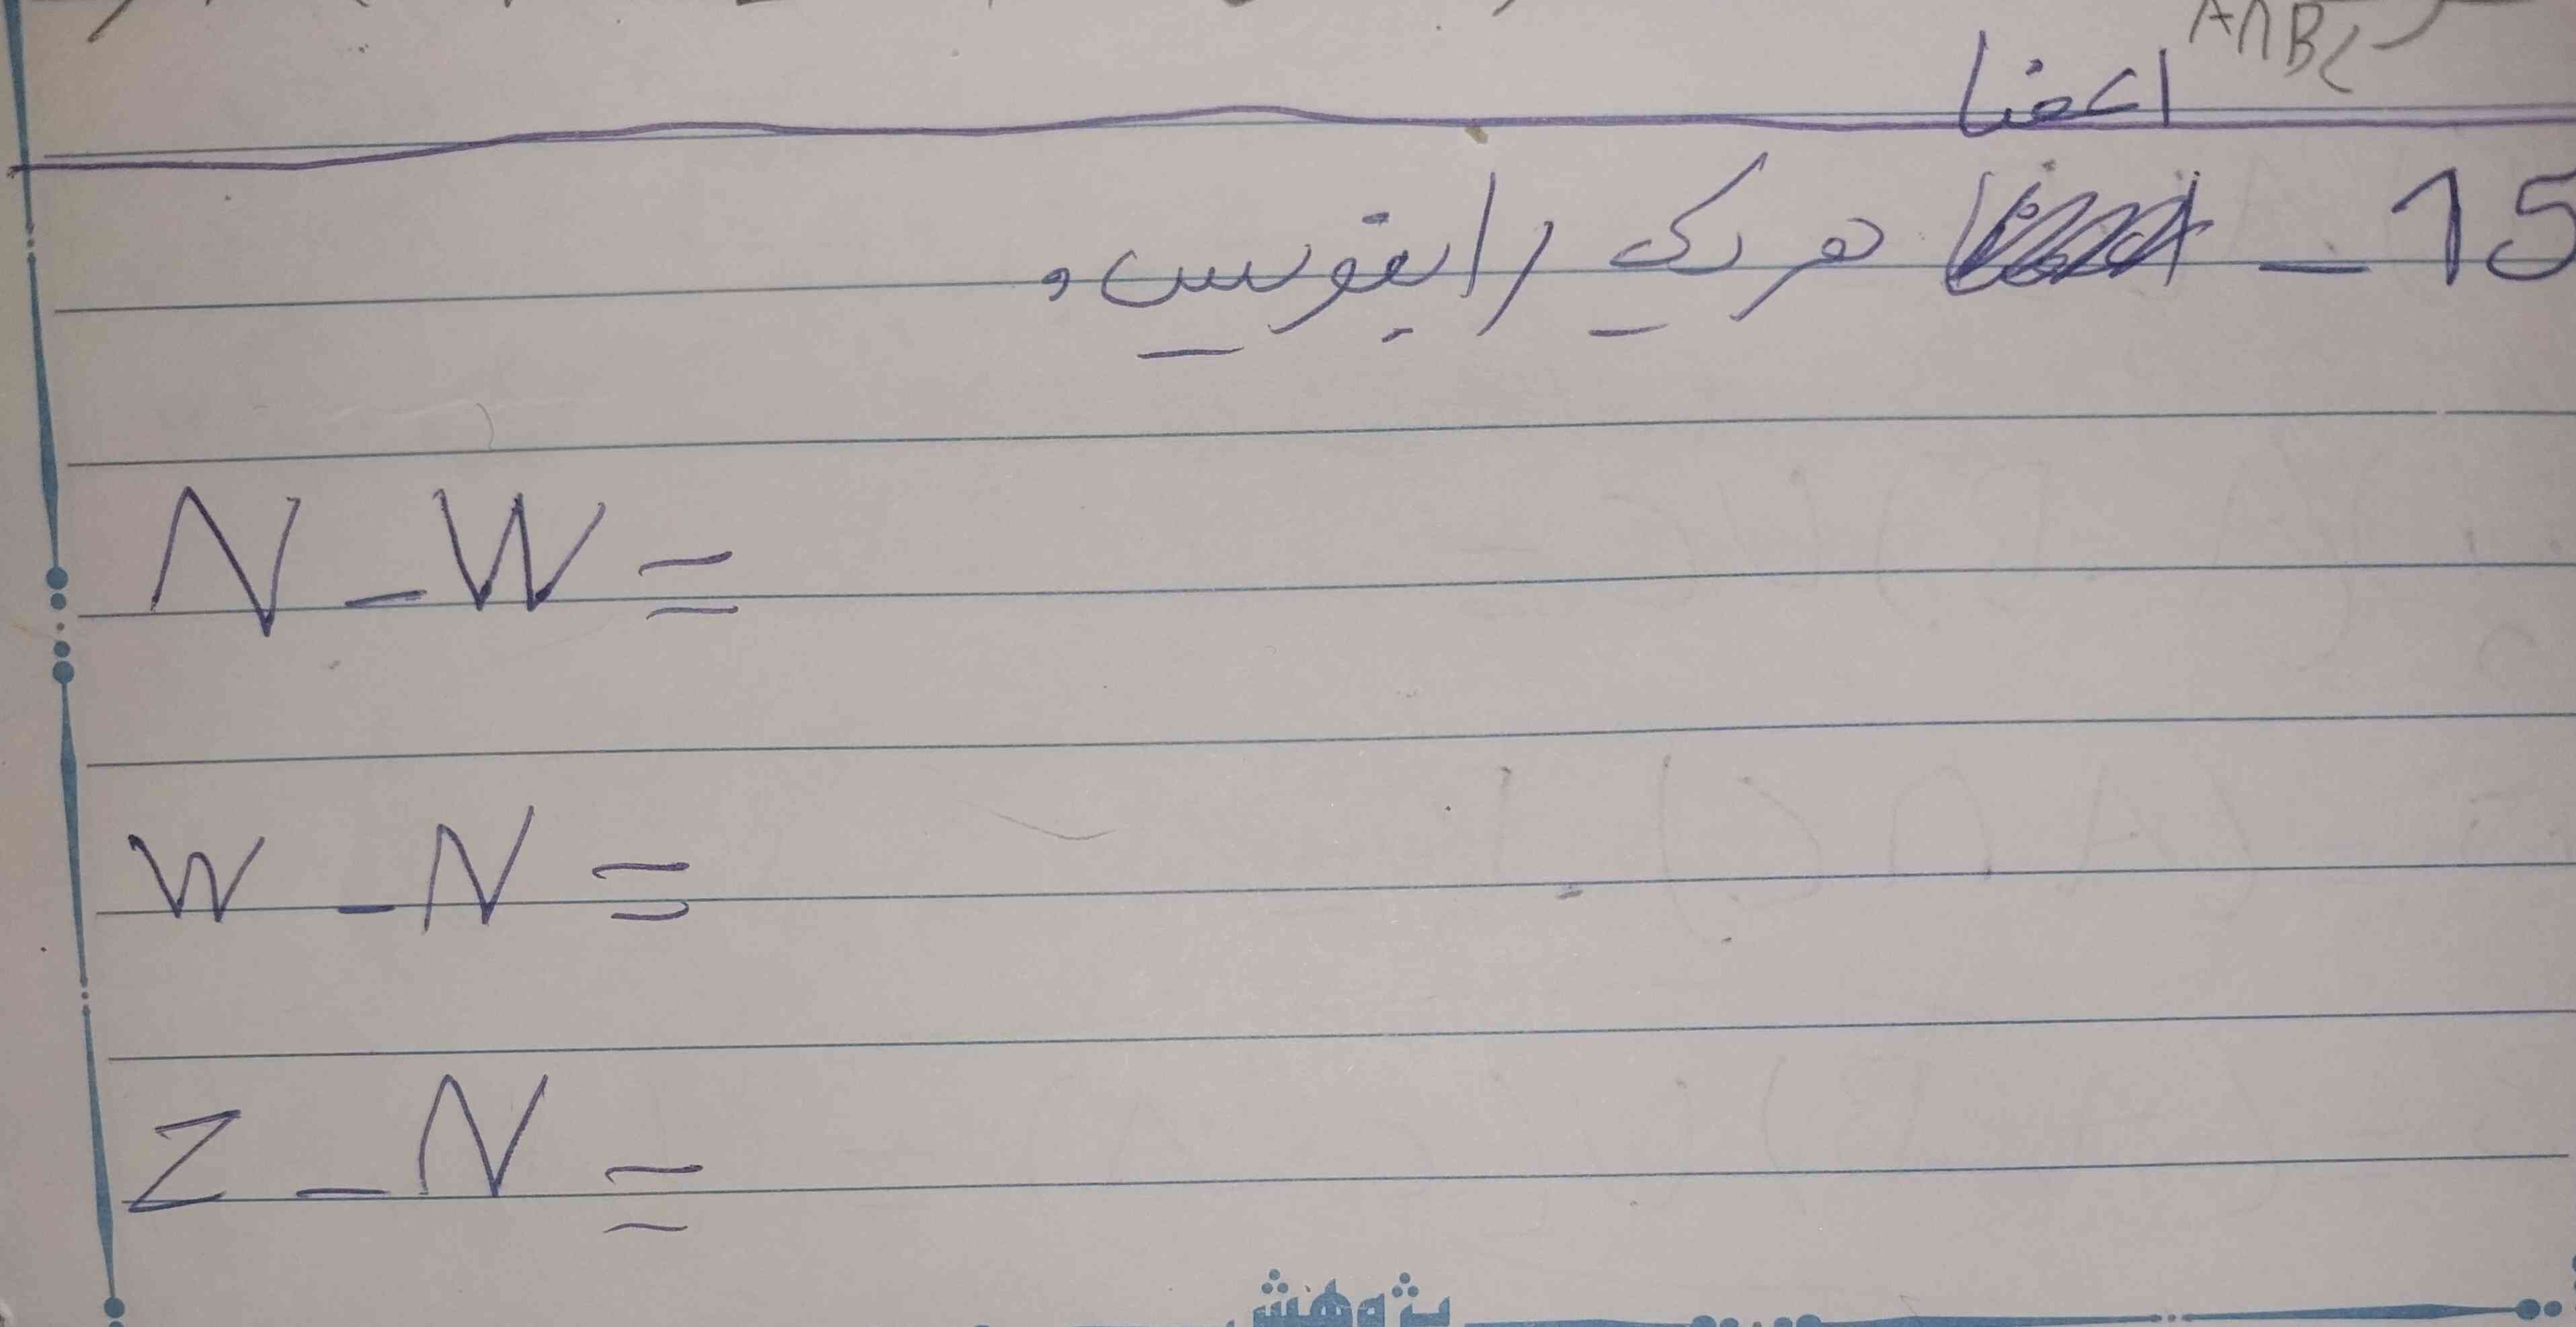 A∩BC
اعضا
15 - هر یک را بنویسید
N - W =
W - N =
Z - N =
پژوهش